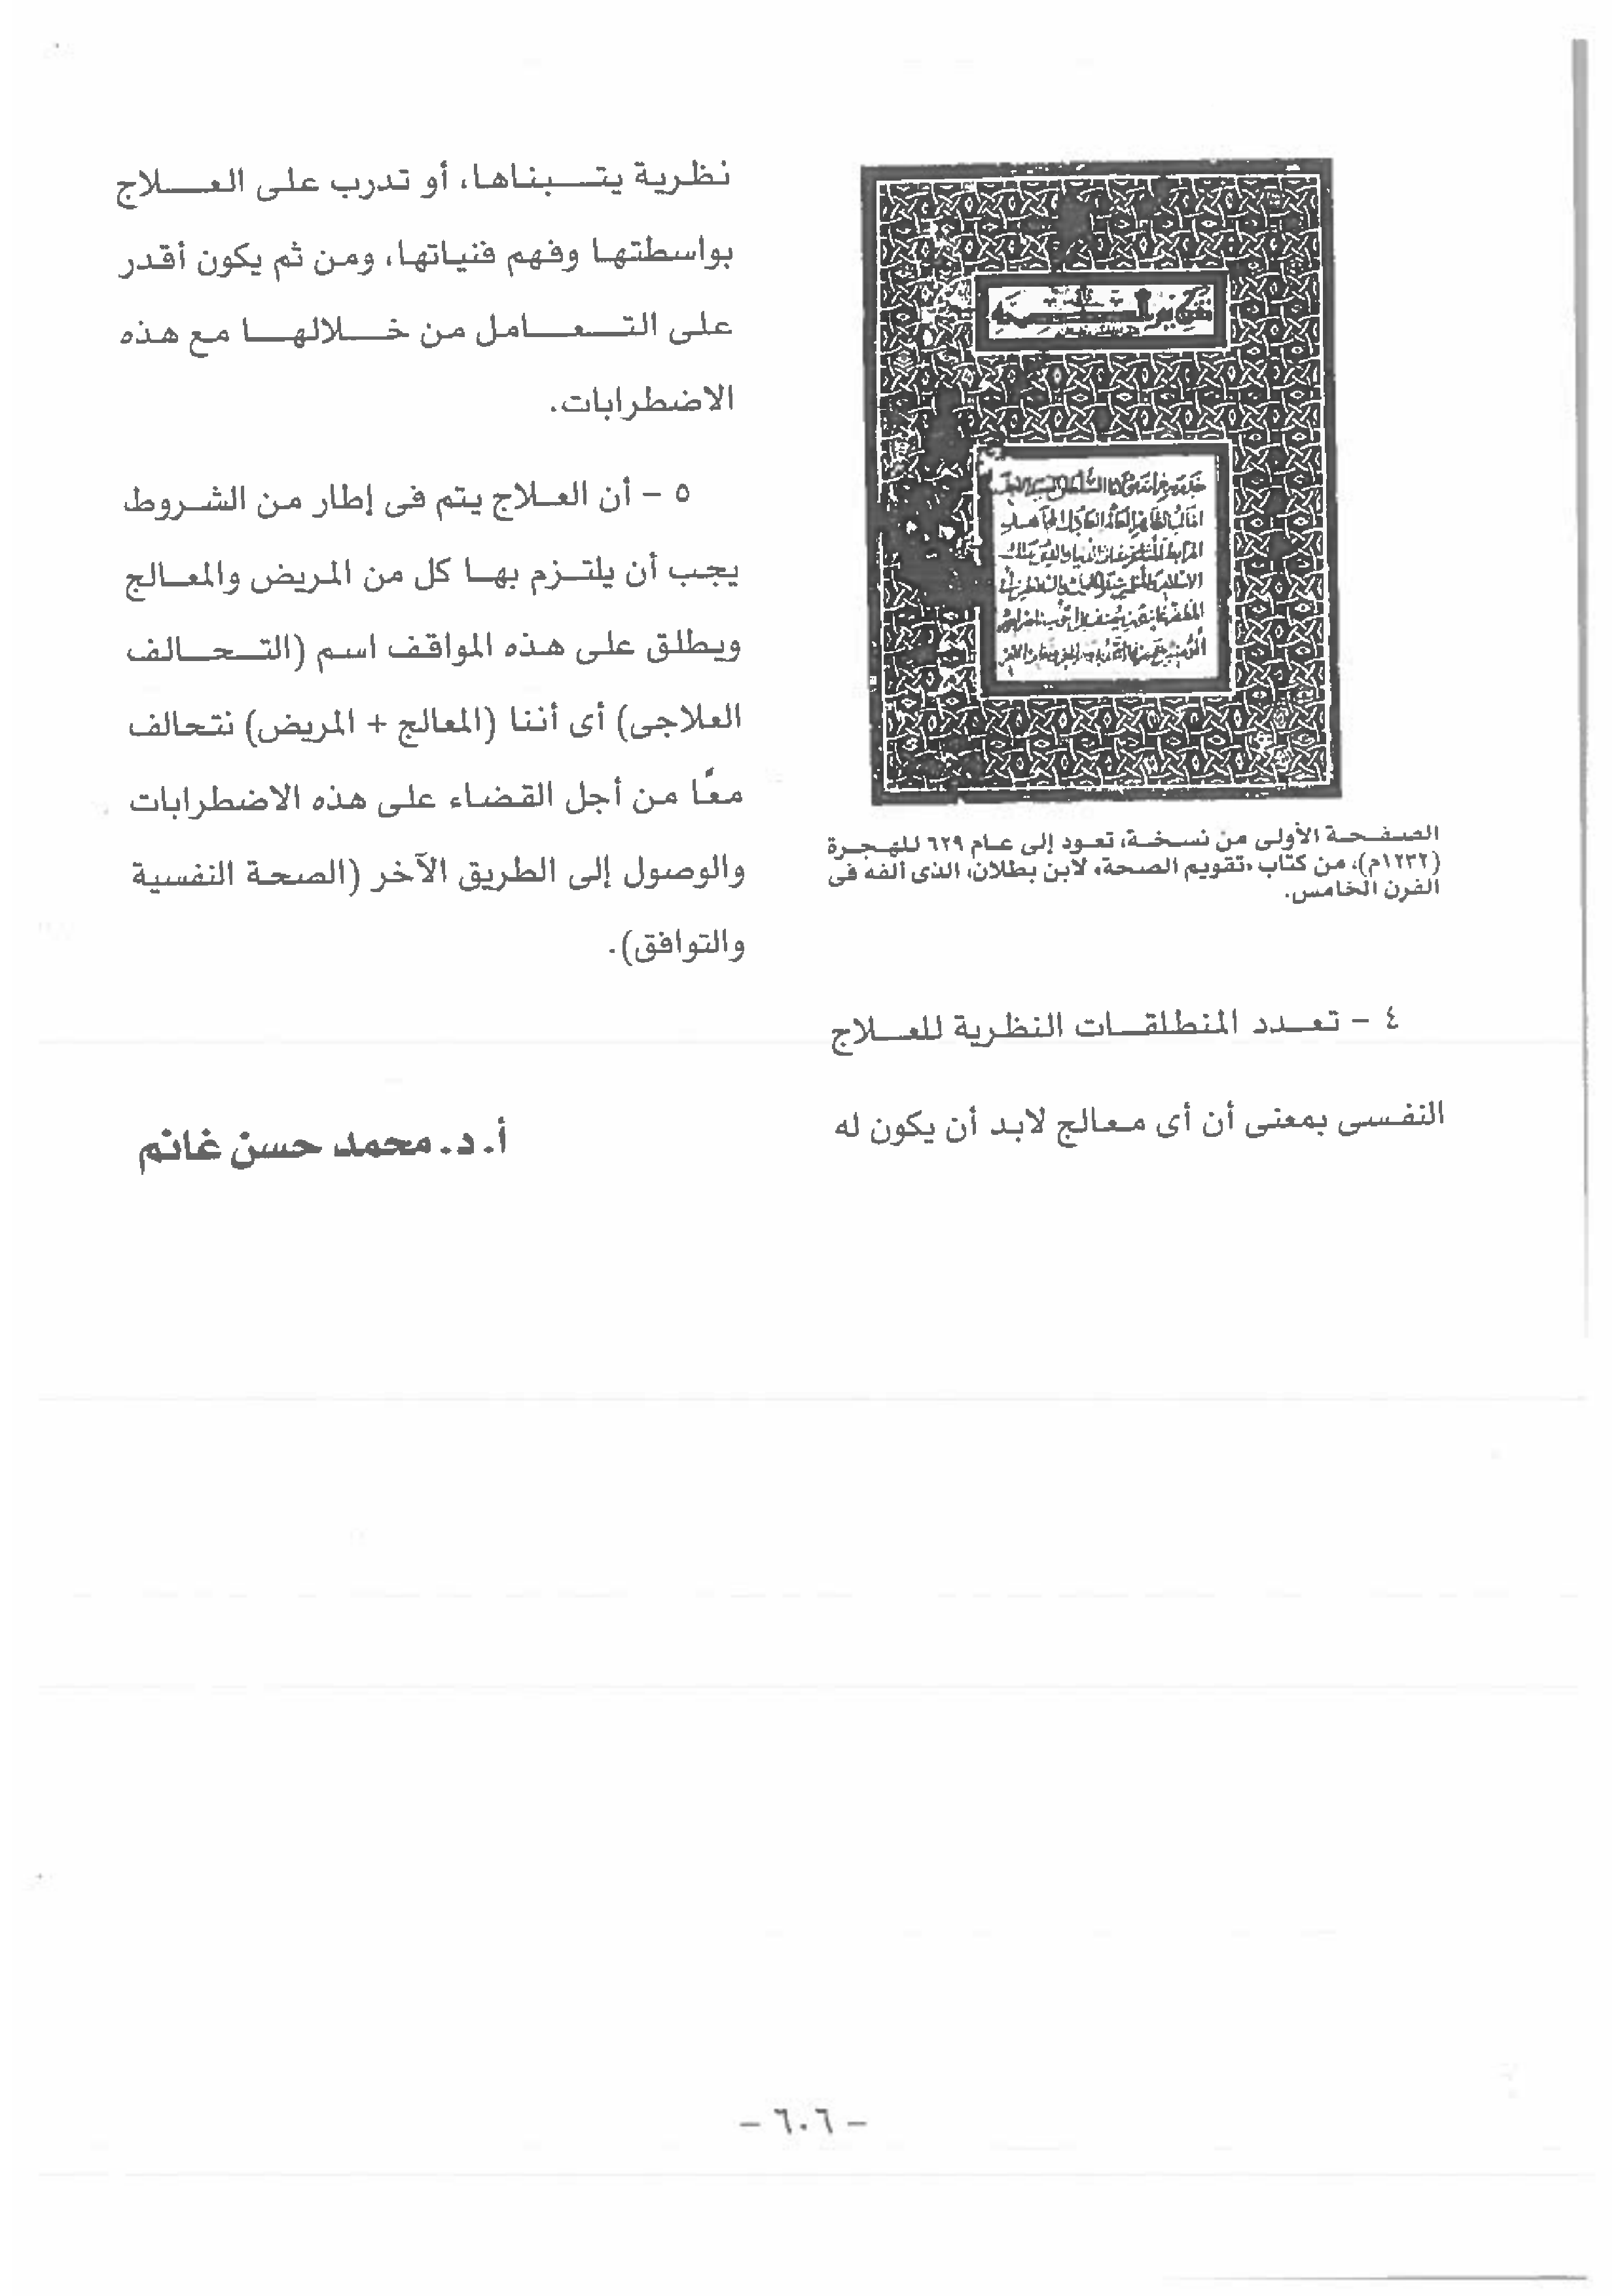 الصفحة الأولى من نسخة، تعود إلى عام ٦٢٩ للهجرة
(١٢٣٢م)، من كتاب «تقويم الصحة»، لابن بطلان، الذى ألفه فى
القرن الخامس.
٤ – تعدد المنطلقات النظرية للعلاج
النفسى بمعنى أن أى معالج لابد أن يكون له
نظرية يتبناها، أو تدرب على العلاج
بواسطتها وفهم فنياتها، ومن ثم يكون أقدر
على التعامل من خلالها مع هذه
الاضطرابات.
٥ – أن العلاج يتم فى إطار من الشروط
يجب أن يلتزم بها كل من المريض والمعالج
ويطلق على هذه المواقف اسم (التحالف
العلاجى) أى أننا (المعالج + المريض) نتحالف
معًا من أجل القضاء على هذه الاضطرابات
والوصول إلى الطريق الآخر (الصحة النفسية
والتوافق).
أ. د. محمد حسن غانم
– ٦٠٦ –